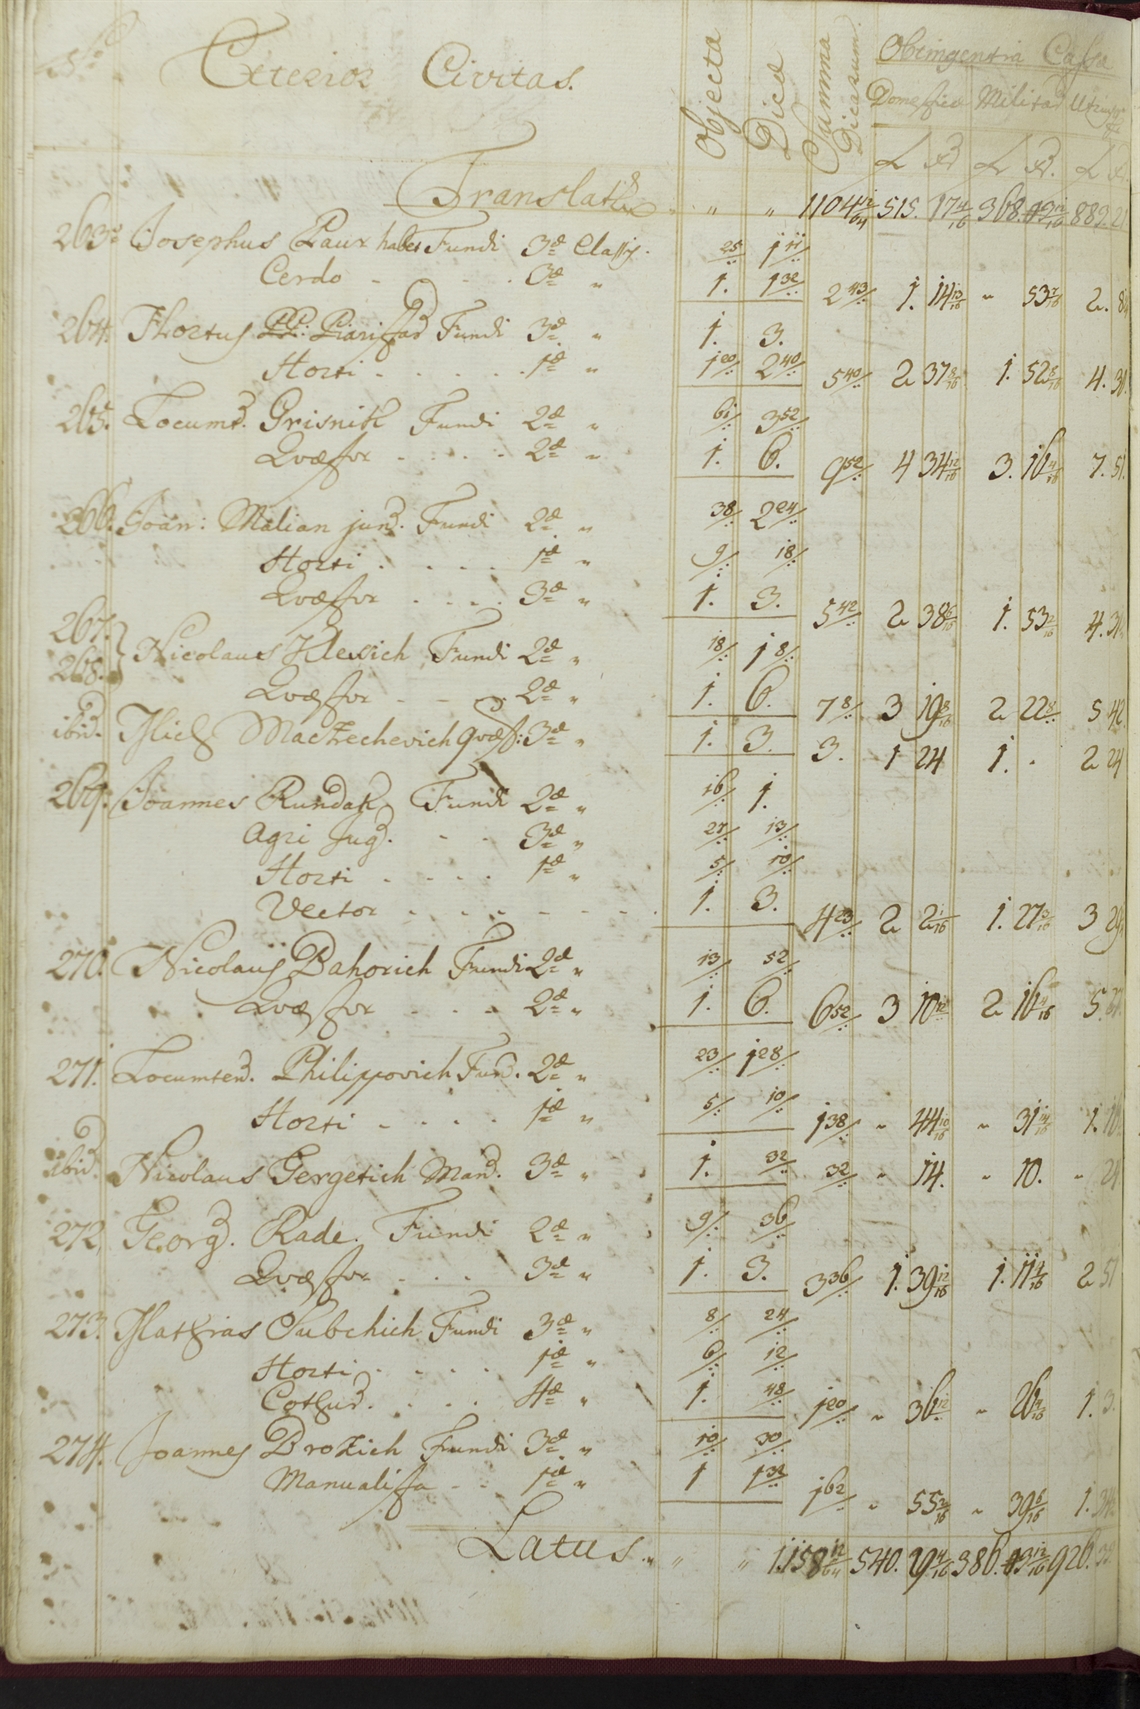 Exterior Civitas.
Objecta Dica Summa Dicarum Obtingentia Cassa
Domestica Militar
Translatus " " " 1104 12/64 515. 17 368. 882.
263 Josephus Paur habet Fundi 3æ Classis. 25/ 1
Cerdo - - . 3æ " 1. 1 32/ 2 43/ 1. 14 " 53 2.
264. Hortus PP: Piaristar Fundi 3æ " 1. 3.
Horti - . . . . . 1æ " 1 20/ 2 40/ 5 40/ 2 37 1. 52 4.
265. Locumt. Grisnik Fundi 2æ " 61/ 3 52/
Quæstor - . . . - 2æ " 1. 6. 9 52/ 4 34 12/16 3. 16 4/16 7. 51.
266. Joan: Milian jun. Fundi 2æ " 38/ 2 24/
Horti . . . . . 1æ " 9/ 18/
Quæstor . . . . 3æ " 1. 3. 5 42/ 2 38 1. 53 4.
267.
268. Nicolaus Klesich Fundi 2æ " 18/ 1 8/
Quæstor - - - 2æ " 1. 6. 7 8/ 3 19 8/16 2 22 5 42.
ibid. Mich Machechevich Quæst: 3æ " 1. 3. 3. 1 24 1. - 2 24
269. Joannes Rundak Fundi 2æ " 16/ 1.
Agri Jug. - - 3æ " 27/ 13/
Horti . . . . 1æ " 5/ 10/
Vector . . . - - - - 1. 3. 4 23/ 2 2 1. 27 3 29
270. Nicolaus Bahorich Fundi 2æ " 13/ 52/
Quæstor . . . 2æ " 1. 6. 6 52/ 3 10 2 16 4/16 5.
271. Locumten. Philippovich Fund. 2æ " 23/ 1 28/
Horti - . . . 1æ " 5/ 10/ 1 38/ " 44 10/16 " 31 14/16 1.
ibid. Nicolaus Gergetich Man. 3æ " 1. 32/ 32/ " 14. " 10. " 24
272. Georg. Rade. Fundi 2æ " 9/ 36/
Quæstor . . . 3æ " 1. 3. 3 36/ 1. 39 12/16 1. 11 4/16 2 51
273. Mathias Subchich Fundi 3æ " 8/ 24/
Horti . . . . 1æ " 6/ 12/
Cothur. . . . 4æ " 1. 48/ 1 20/ " 36 12/ " 26 4/16 1. 3.
274. Joannes Brozich Fundi 3æ " 10/ 30/
Manualista - - 1æ " 1 1 32/ 1 62/ " 55 " 39 1.
Latus. " " " 1158 12/64 540. 29 4/16 386. 926.